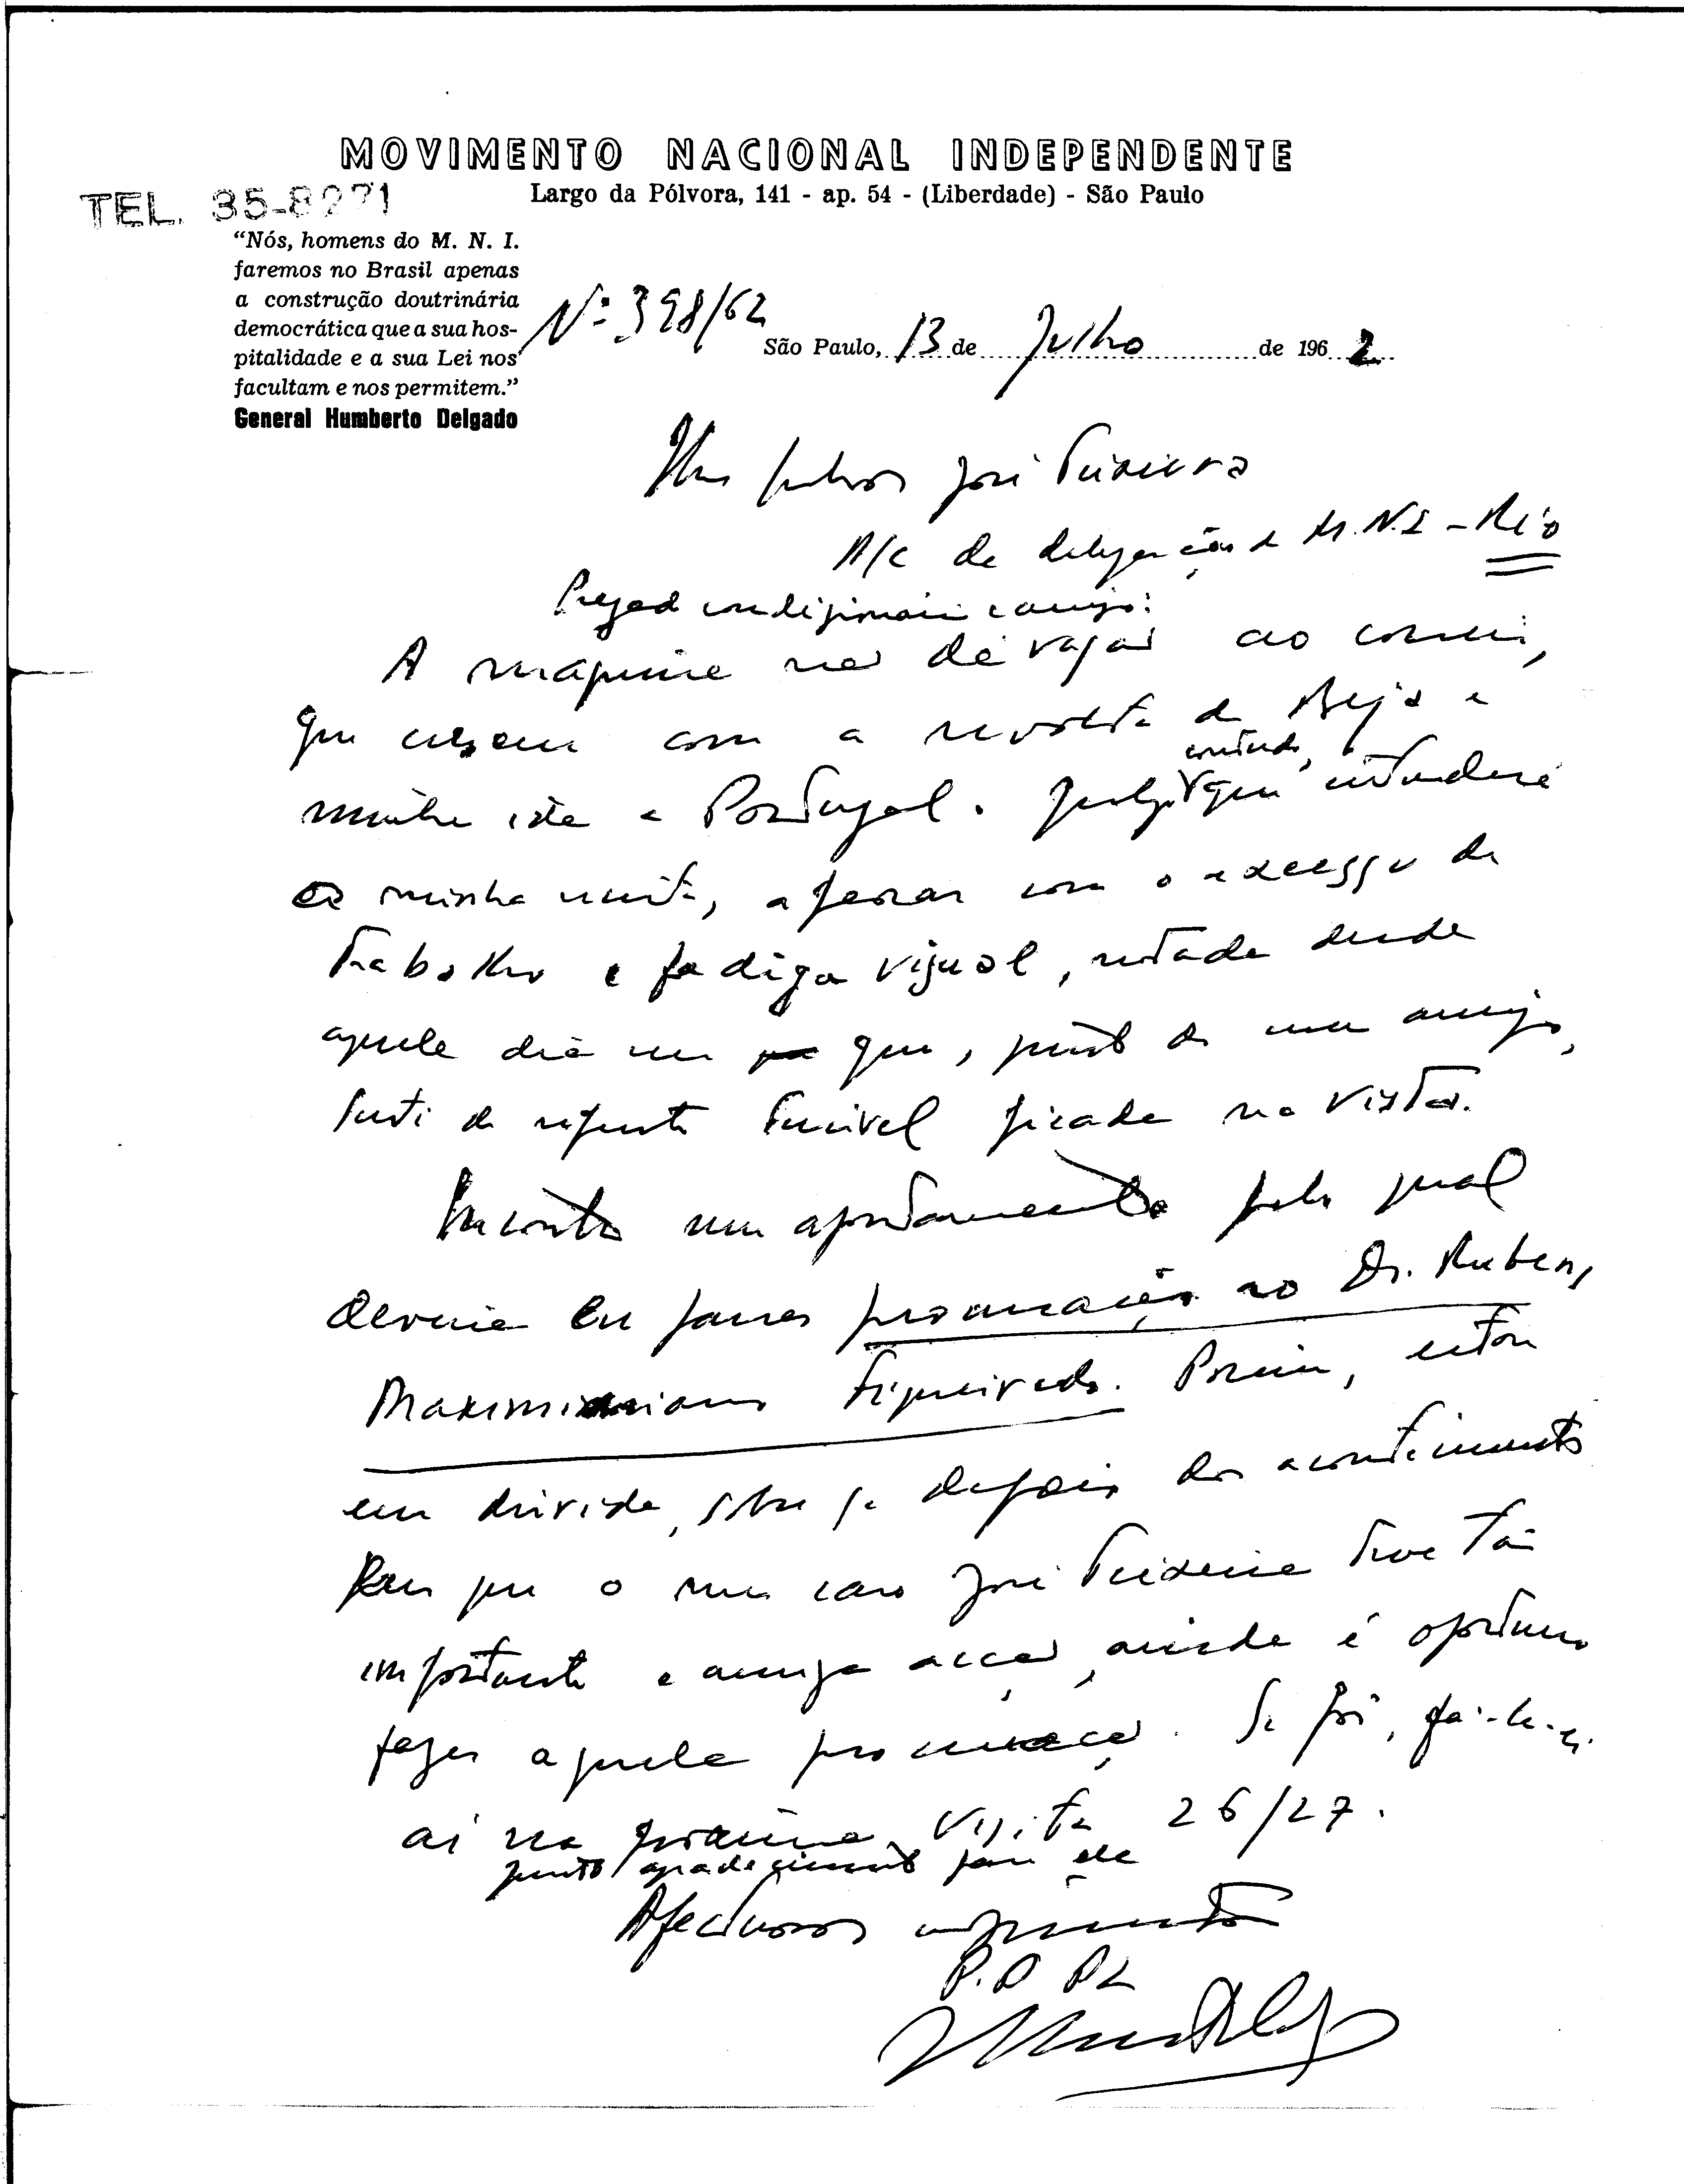 MOVIMENTO NACIONAL INDEPENDENTE
Largo da Pólvora, 141 - ap. 54 - (Liberdade) - São Paulo
TEL. 35-8271
“Nós, homens do M. N. I.
faremos no Brasil apenas
a construção doutrinária
democrática que a sua hos-
pitalidade e a sua Lei nos
facultam e nos permitem.”
General Humberto Delgado
Nº 398/62
São Paulo, 13 de Julho de 1962
José Teixeira
A/C da delegação do M.N.I - Rio
Prezado correligionário e amigo:
A máquina não dá vazão ao correio,
que cresceu com a revolta de Beja e
minha ida a Portugal. Julgo contudo, que entenderá
a minha escrita, apesar com o excesso de
trabalho e fadiga visual, notada desde
aquele dia em que, junto do meu amigo,
senti de repente terrível picada na vista.
Encontro um apontamento pelo qual
deveria eu passar procuração ao Dr. Rubens
Maximiano Figueiredo. Porém, estou
em dúvida, sobre se depois dos acontecimentos
em que o meu caro José Teixeira teve tão
importante e amiga acção, ainda é oportuno
fazer aquela procuração. Se fôr, fá-la-ei
aí na próxima visita 26/27.
Junto agradecimento para ele
Afectuosos cumprimentos